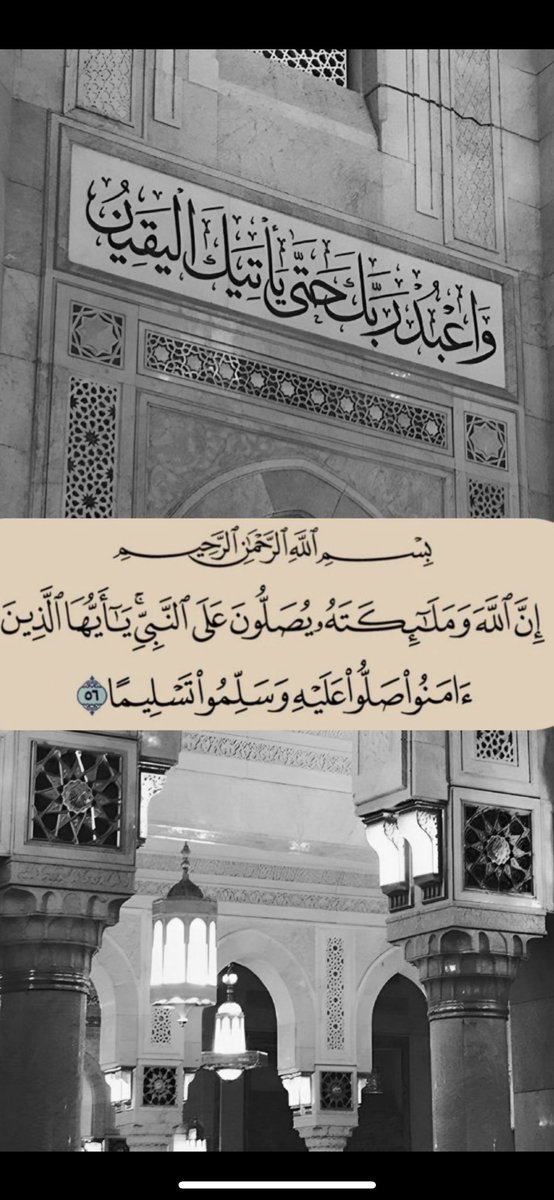 وَاعْبُدْ رَبَّكَ حَتَّىٰ يَأْتِيَكَ الْيَقِينُ
بِسْمِ ٱللَّهِ ٱلرَّحْمَٰنِ ٱلرَّحِيمِ
إِنَّ ٱللَّهَ وَمَلَٰٓئِكَتَهُۥ يُصَلُّونَ عَلَى ٱلنَّبِيِّۚ يَٰٓأَيُّهَا ٱلَّذِينَ
ءَامَنُوا۟ صَلُّوا۟ عَلَيْهِ وَسَلِّمُوا۟ تَسْلِيمًا ٥٦